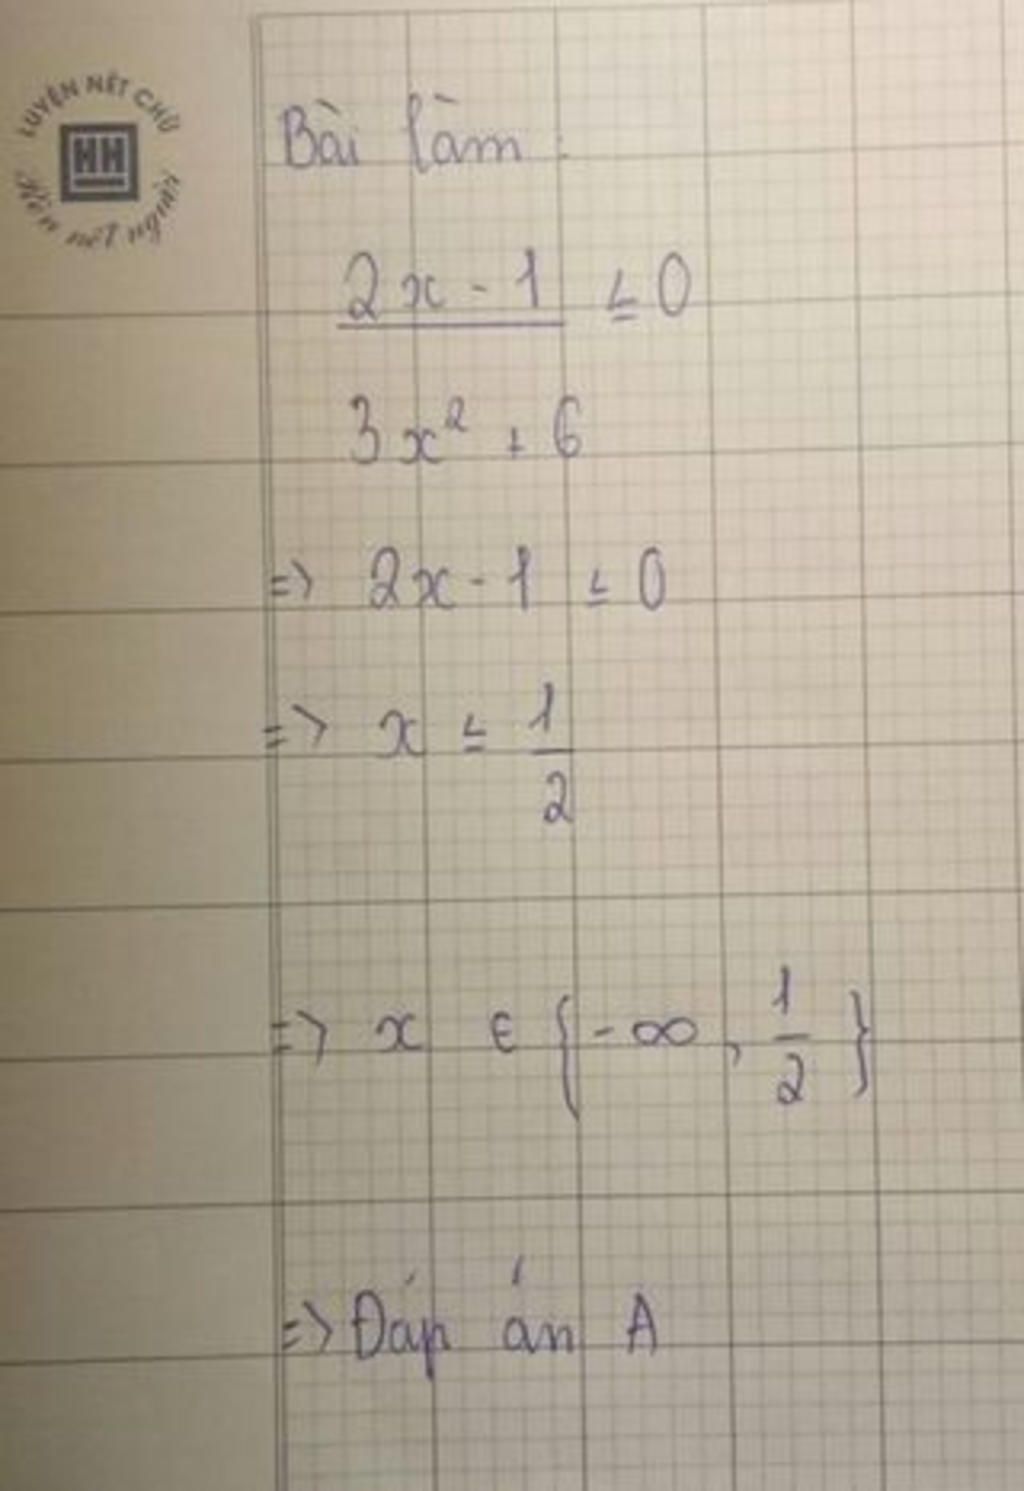 LUYỆN NÉT CHỮ
HH
Rèn nết người
Bài làm:
2x - 1 ≤ 0
3x² + 6
=> 2x - 1 ≤ 0
=> x ≤ 1/2
=> x ∈ {-∞, 1/2}
=> Đáp án A